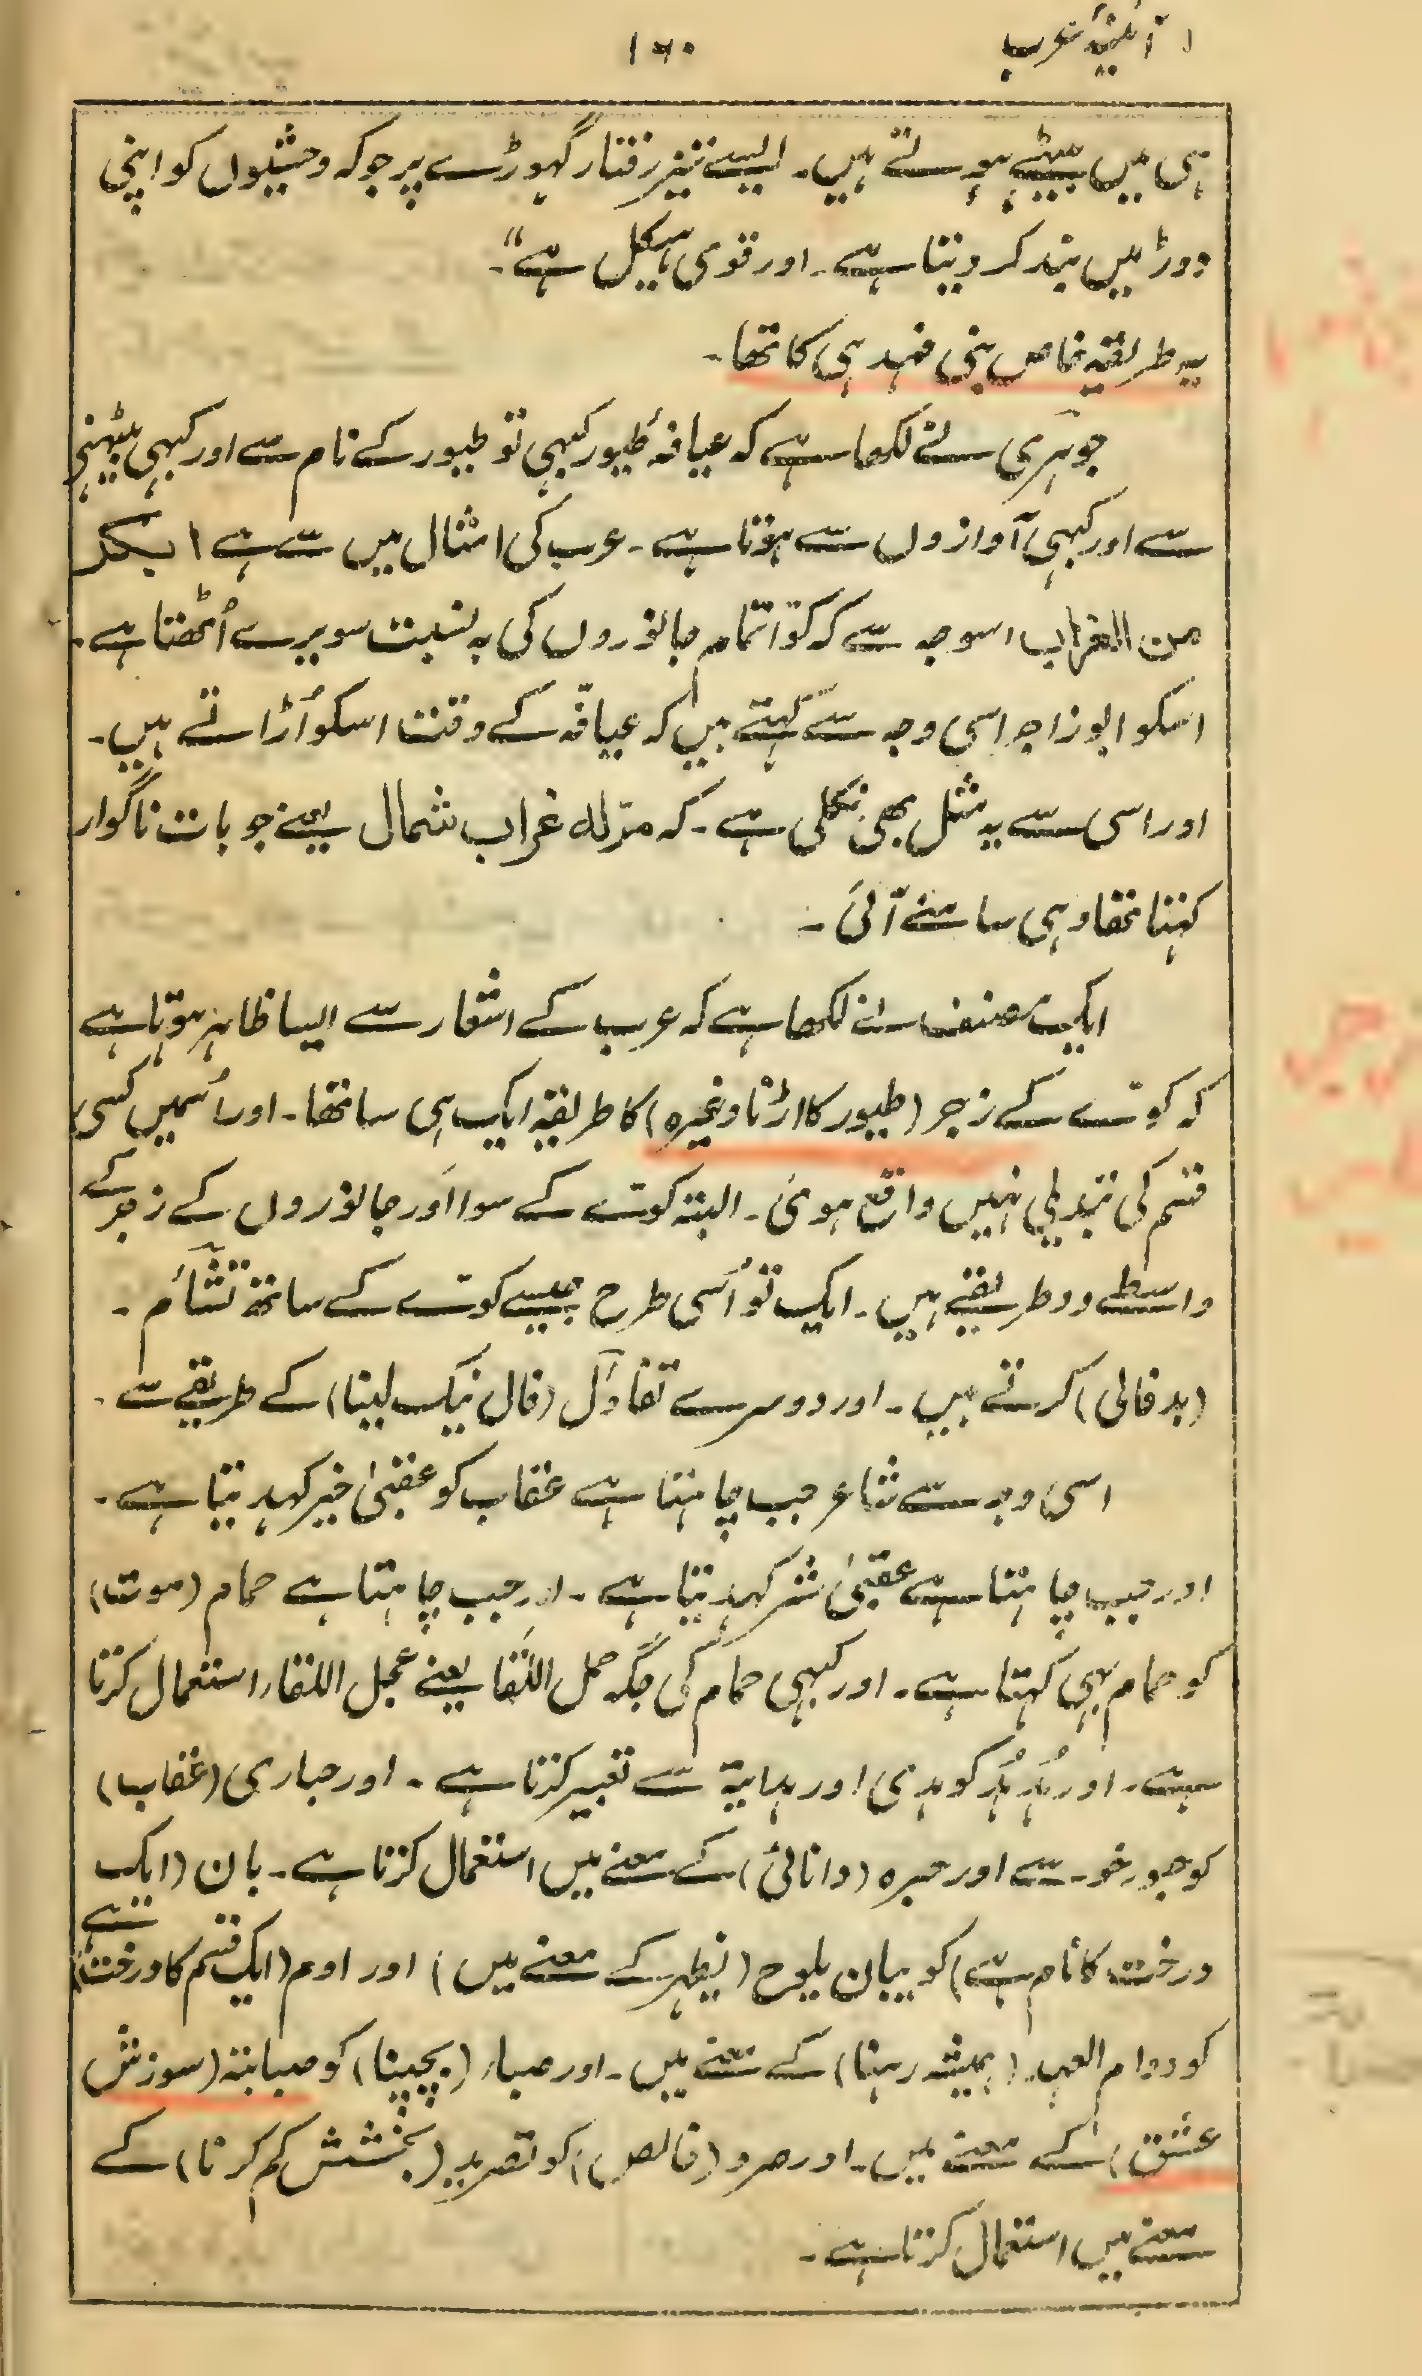 آئینۂ عرب
۱۶۰
ہی میں بیٹے ہوتے ہیں۔ ایسے تیز رفتار گہوڑے پر جو کہ وحشیوں کو اپنی
دوڑ میں بند کر دیتا ہے۔ اور قوی ہیکل ہے"۔
یہ طریقہ خاص بنی فہد ہی کا تھا۔
جوہری نے لکھا ہے کہ عیافۂ طیور کبہی تو طیور کے نام سے اور کبہی بیٹہنے
سے اور کبہی آوازوں سے ہوتا ہے۔ عرب کی امثال میں سے ہے ابکر
من الغراب اسوجہ سے کہ کوّا تمام جانوروں کی بہ نسبت سویرے اُٹھتا ہے۔
اسکو ابوزاجر اسی وجہ سے کہتے ہیں کہ عیافّہ کے وقت اسکو اُڑاتے ہیں۔
اور اسی سے یہ مثل بھی نکلی ہے۔ کہ مرّلہ غراب شمال یعنے جو بات ناگوار
کہنا تھا وہی سامنے آئی۔
ایک مصنف نے لکھا ہے کہ عرب کے اشعار سے ایسا ظاہر ہوتا ہے
کہ کوّے کے زجر (طیور کا اڑنا وغیرہ) کا طریقہ ایک ہی سا تھا۔ اور اُسمیں کسی
قسم کی تبدیلی نہیں واقع ہوئی۔ البتہ کوّے کے سوا اَور جانوروں کے زجر کے
واسطے دو طریقے ہیں۔ ایک تو اُسی طرح جیسے کوّے کے ساتھ تشاَٰم۔
(بدفالی) کرتے ہیں۔ اور دوسرے تفاؤل (فال نیک لینا) کے طریقے سے۔
اسی وجہ سے شاعر جب چاہتا ہے عقاب کو عقبیٰ خیر کہدیتا ہے۔
اور جب چاہتا ہے عقبیٰ شر کہدیتا ہے۔ اور جب چاہتا ہے حمام (موت)
کو حمام ہی کہتا ہے۔ اور کبہی حمام کی جگہ حمل اللقا یعنے عجل اللقاء استعمال کرتا
ہے۔ اور ہُدہُد کو ہدی اور ہدایۃ سے تعبیر کرتا ہے۔ اور حباری (عقاب)
کو حبور سے اور حبرہ (دانائی) کے معنے میں استعمال کرتا ہے۔ بان (ایک
درخت کا نام ہے) کو بیان یلوح (یظہر کے معنے میں) اور اوم (ایک قسم کا درخت ہے)
کو دوام العہد (ہمیشہ رہنا) کے معنے میں۔ اور صباء (بچپنا) کو صبابتہ (سوزش
عشق) کے معنے میں۔ اور صرد (خالص) کو تصرید (بخشش کم کرنا) کے
معنے میں استعمال کرتا ہے۔